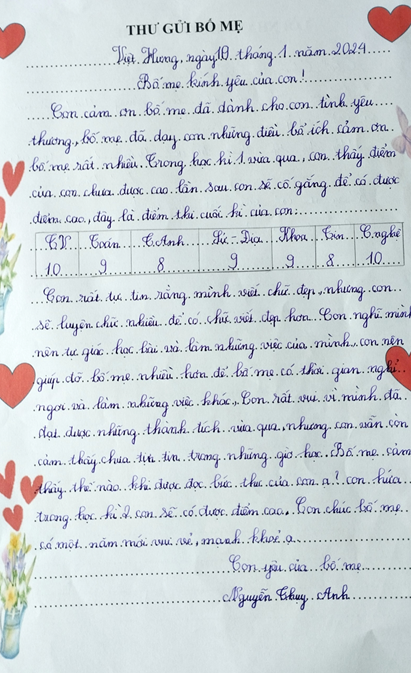 THƯ GỬI BỐ MẸ
Việt Hưng, ngày 10 tháng 1 năm 2024
Bố mẹ kính yêu của con!
Con cảm ơn bố mẹ đã dành cho con tình yêu
thương, bố mẹ đã dạy con những điều bổ ích cảm ơn
bố mẹ rất nhiều. Trong học kì 1 vừa qua, con thấy điểm
của con chưa được cao lần sau con sẽ cố gắng để có được
điểm cao, đây là điểm thi cuối kì của con:
T.V Toán T.Anh Sử-Địa Khoa Tin C.nghệ
10 9 8 9 9 8 10
Con rất tự tin rằng mình viết chữ đẹp nhưng con
sẽ luyện chữ nhiều để có chữ viết đẹp hơn. Con nghĩ mình
nên tự giác học bài và làm những việc của mình, con nên
giúp đỡ bố mẹ nhiều hơn để bố mẹ có thời gian nghỉ
ngơi và làm những việc khác. Con rất vui vì mình đã
đạt được những thành tích vừa qua nhưng con vẫn còn
cảm thấy chưa tựa tin trong những giờ học. Bố mẹ cảm
thấy thế nào khi được đọc bức thư của con ạ? con hứa
trong học kì 2 con sẽ có được điểm cao. Con chúc bố mẹ
có một năm mới vui vẻ, mạnh khoẻ ạ
Con yêu của bố mẹ
Nguyễn Thuỳ Anh